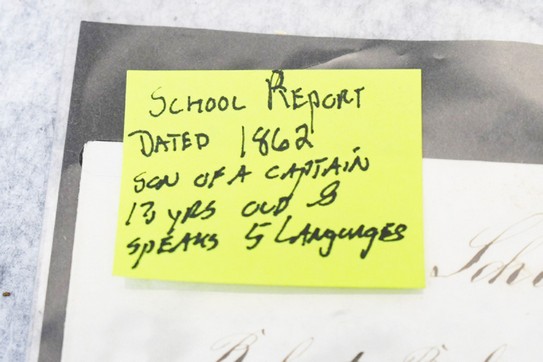 SCHOOL REPORT
DATED 1862
SON OF A CAPTAIN
13 YRS OLD &
SPEAKS 5 LANGUAGES
Sch